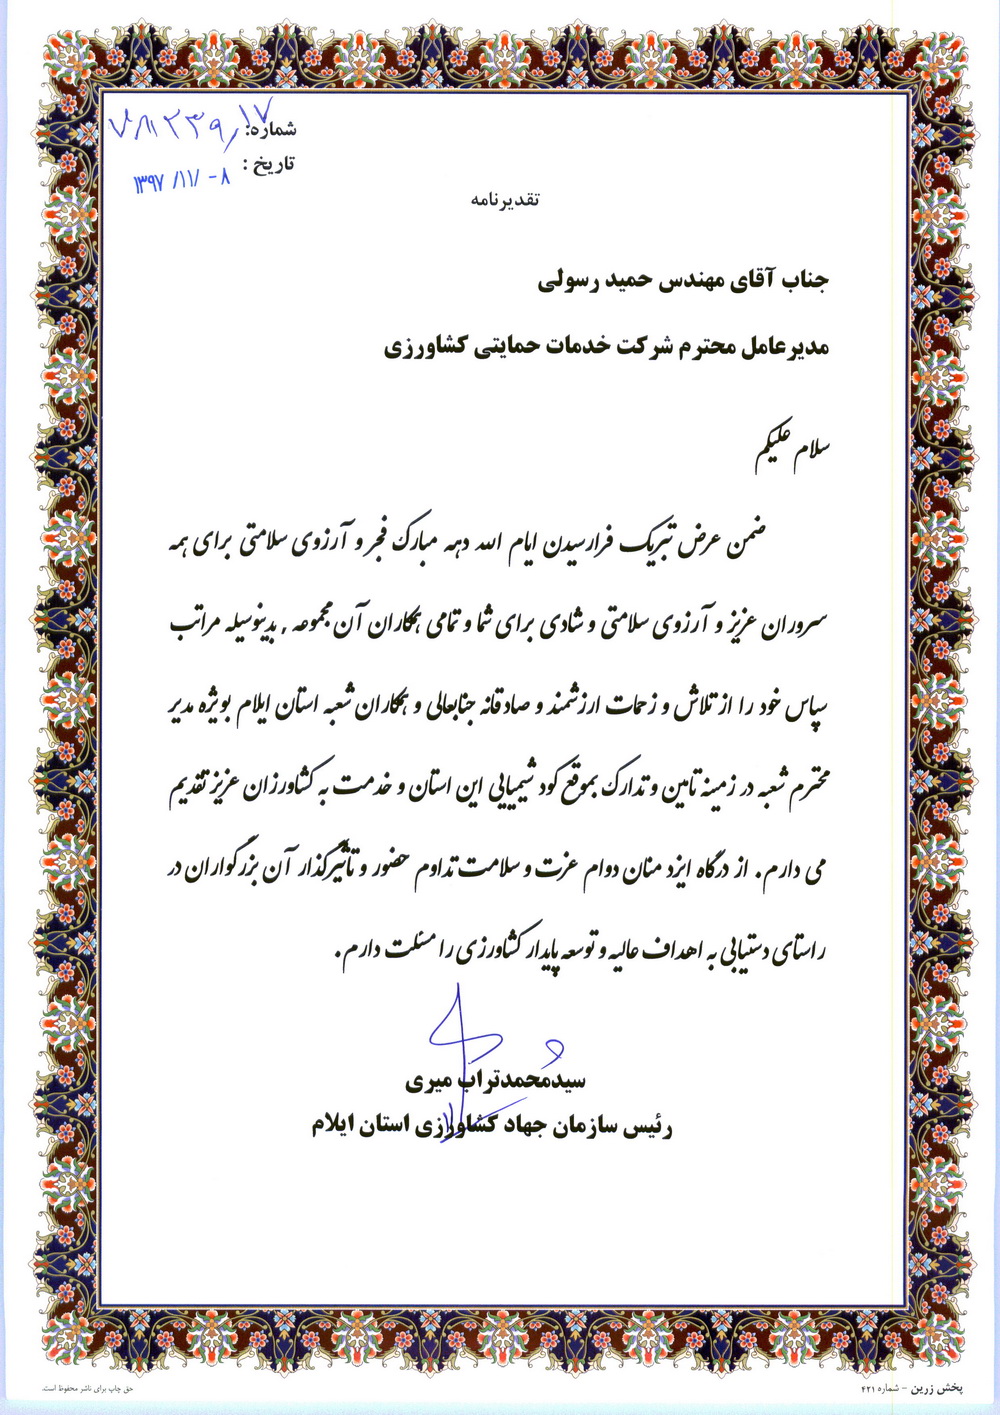 شماره:
تاریخ : ۱۳۹۷/۱۱/-۸
تقدیرنامه
جناب آقای مهندس حمید رسولی
مدیرعامل محترم شرکت خدمات حمایتی کشاورزی
سلام علیکم
ضمن عرض تبریک فرارسیدن ایام الله دهه مبارک فجر و آرزوی سلامتی برای همه
سروران عزیز و آرزوی سلامتی و شادی برای شما و تمامی همکاران آن مجموعه , بدینوسیله مراتب
سپاس خود را از تلاش و زحمات ارزشمند و صادقانه جنابعالی و همکاران شعبه استان ایلام بویژه مدیر
محترم شعبه در زمینه تامین و تدارک بموقع کود شیمیایی این استان و خدمت به کشاورزان عزیز تقدیم
می دارم. از درگاه ایزد منان دوام عزت و سلامت تداوم حضور و تأثیرگذار آن بزرگواران در
راستای دستیابی به اهداف عالیه و توسعه پایدار کشاورزی را مسئلت دارم.
سیدمحمدتراب میری
رئیس سازمان جهاد کشاورزی استان ایلام
پخش زرین - شماره ۴۲۱
حق چاپ برای ناشر محفوظ است.